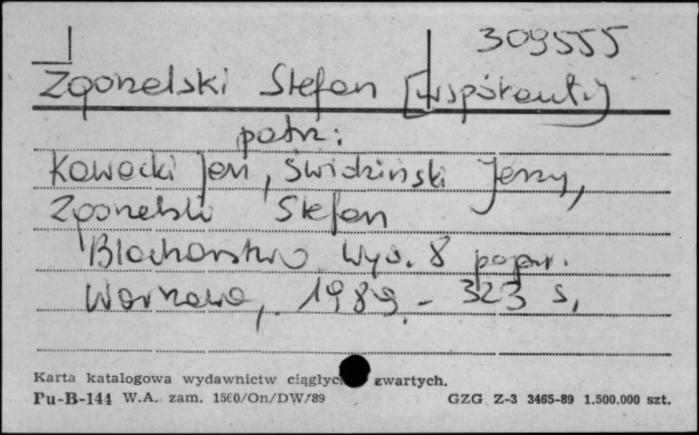 309555
Zgorzelski Stefan [współaut.]
patrz:
Kawecki Jan, Świdziński Jerzy,
Zgorzelski Stefan
Blacharstwo Wyd. 8 popr.
Warszawa, 1989. - 323 s.
Karta katalogowa wydawnictw ciągłych zwartych.
Pu-B-144 W.A. zam. 1560/On/DW/89 GZG Z-3 3465-89 1.500.000 szt.